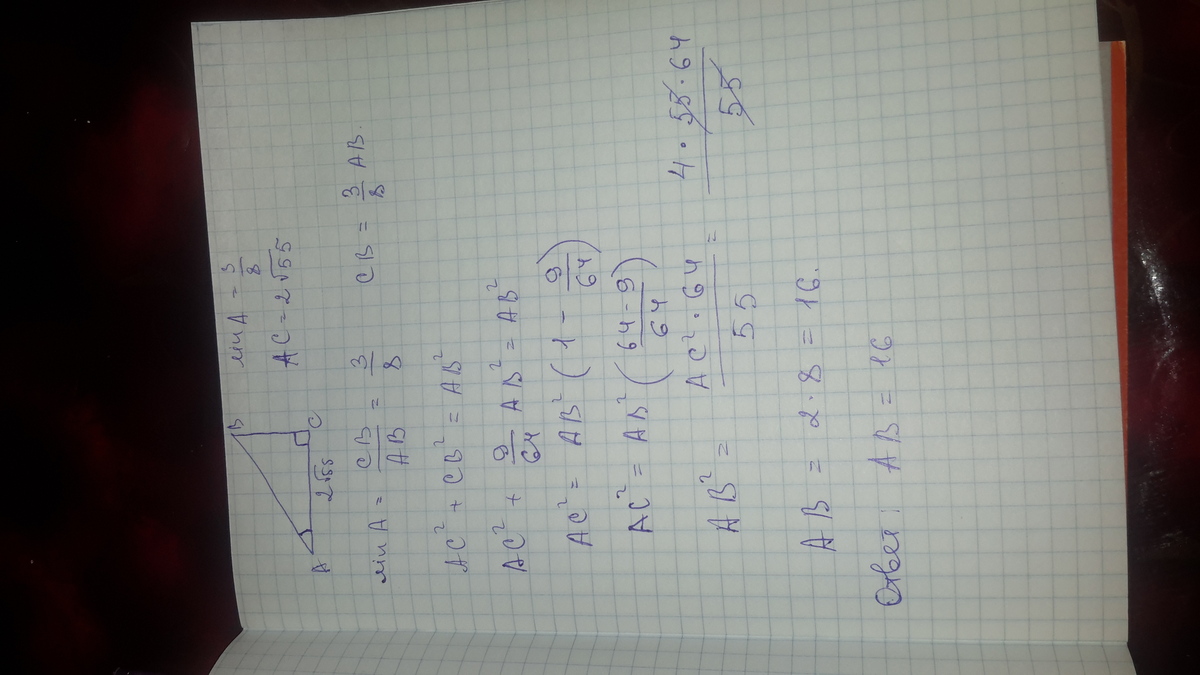 B
A
2√55
C
sin A = 3/8
AC = 2√55
sin A = CB/AB = 3/8 CB = 3/8 AB.
AC² + CB² = AB²
AC² + 9/64 AB² = AB²
AC² = AB² (1 - 9/64)
AC² = AB² ((64-9)/64)
AB² = (AC² · 64)/55 = (4 · 55 · 64)/55
AB = 2 · 8 = 16.
Ответ: AB = 16